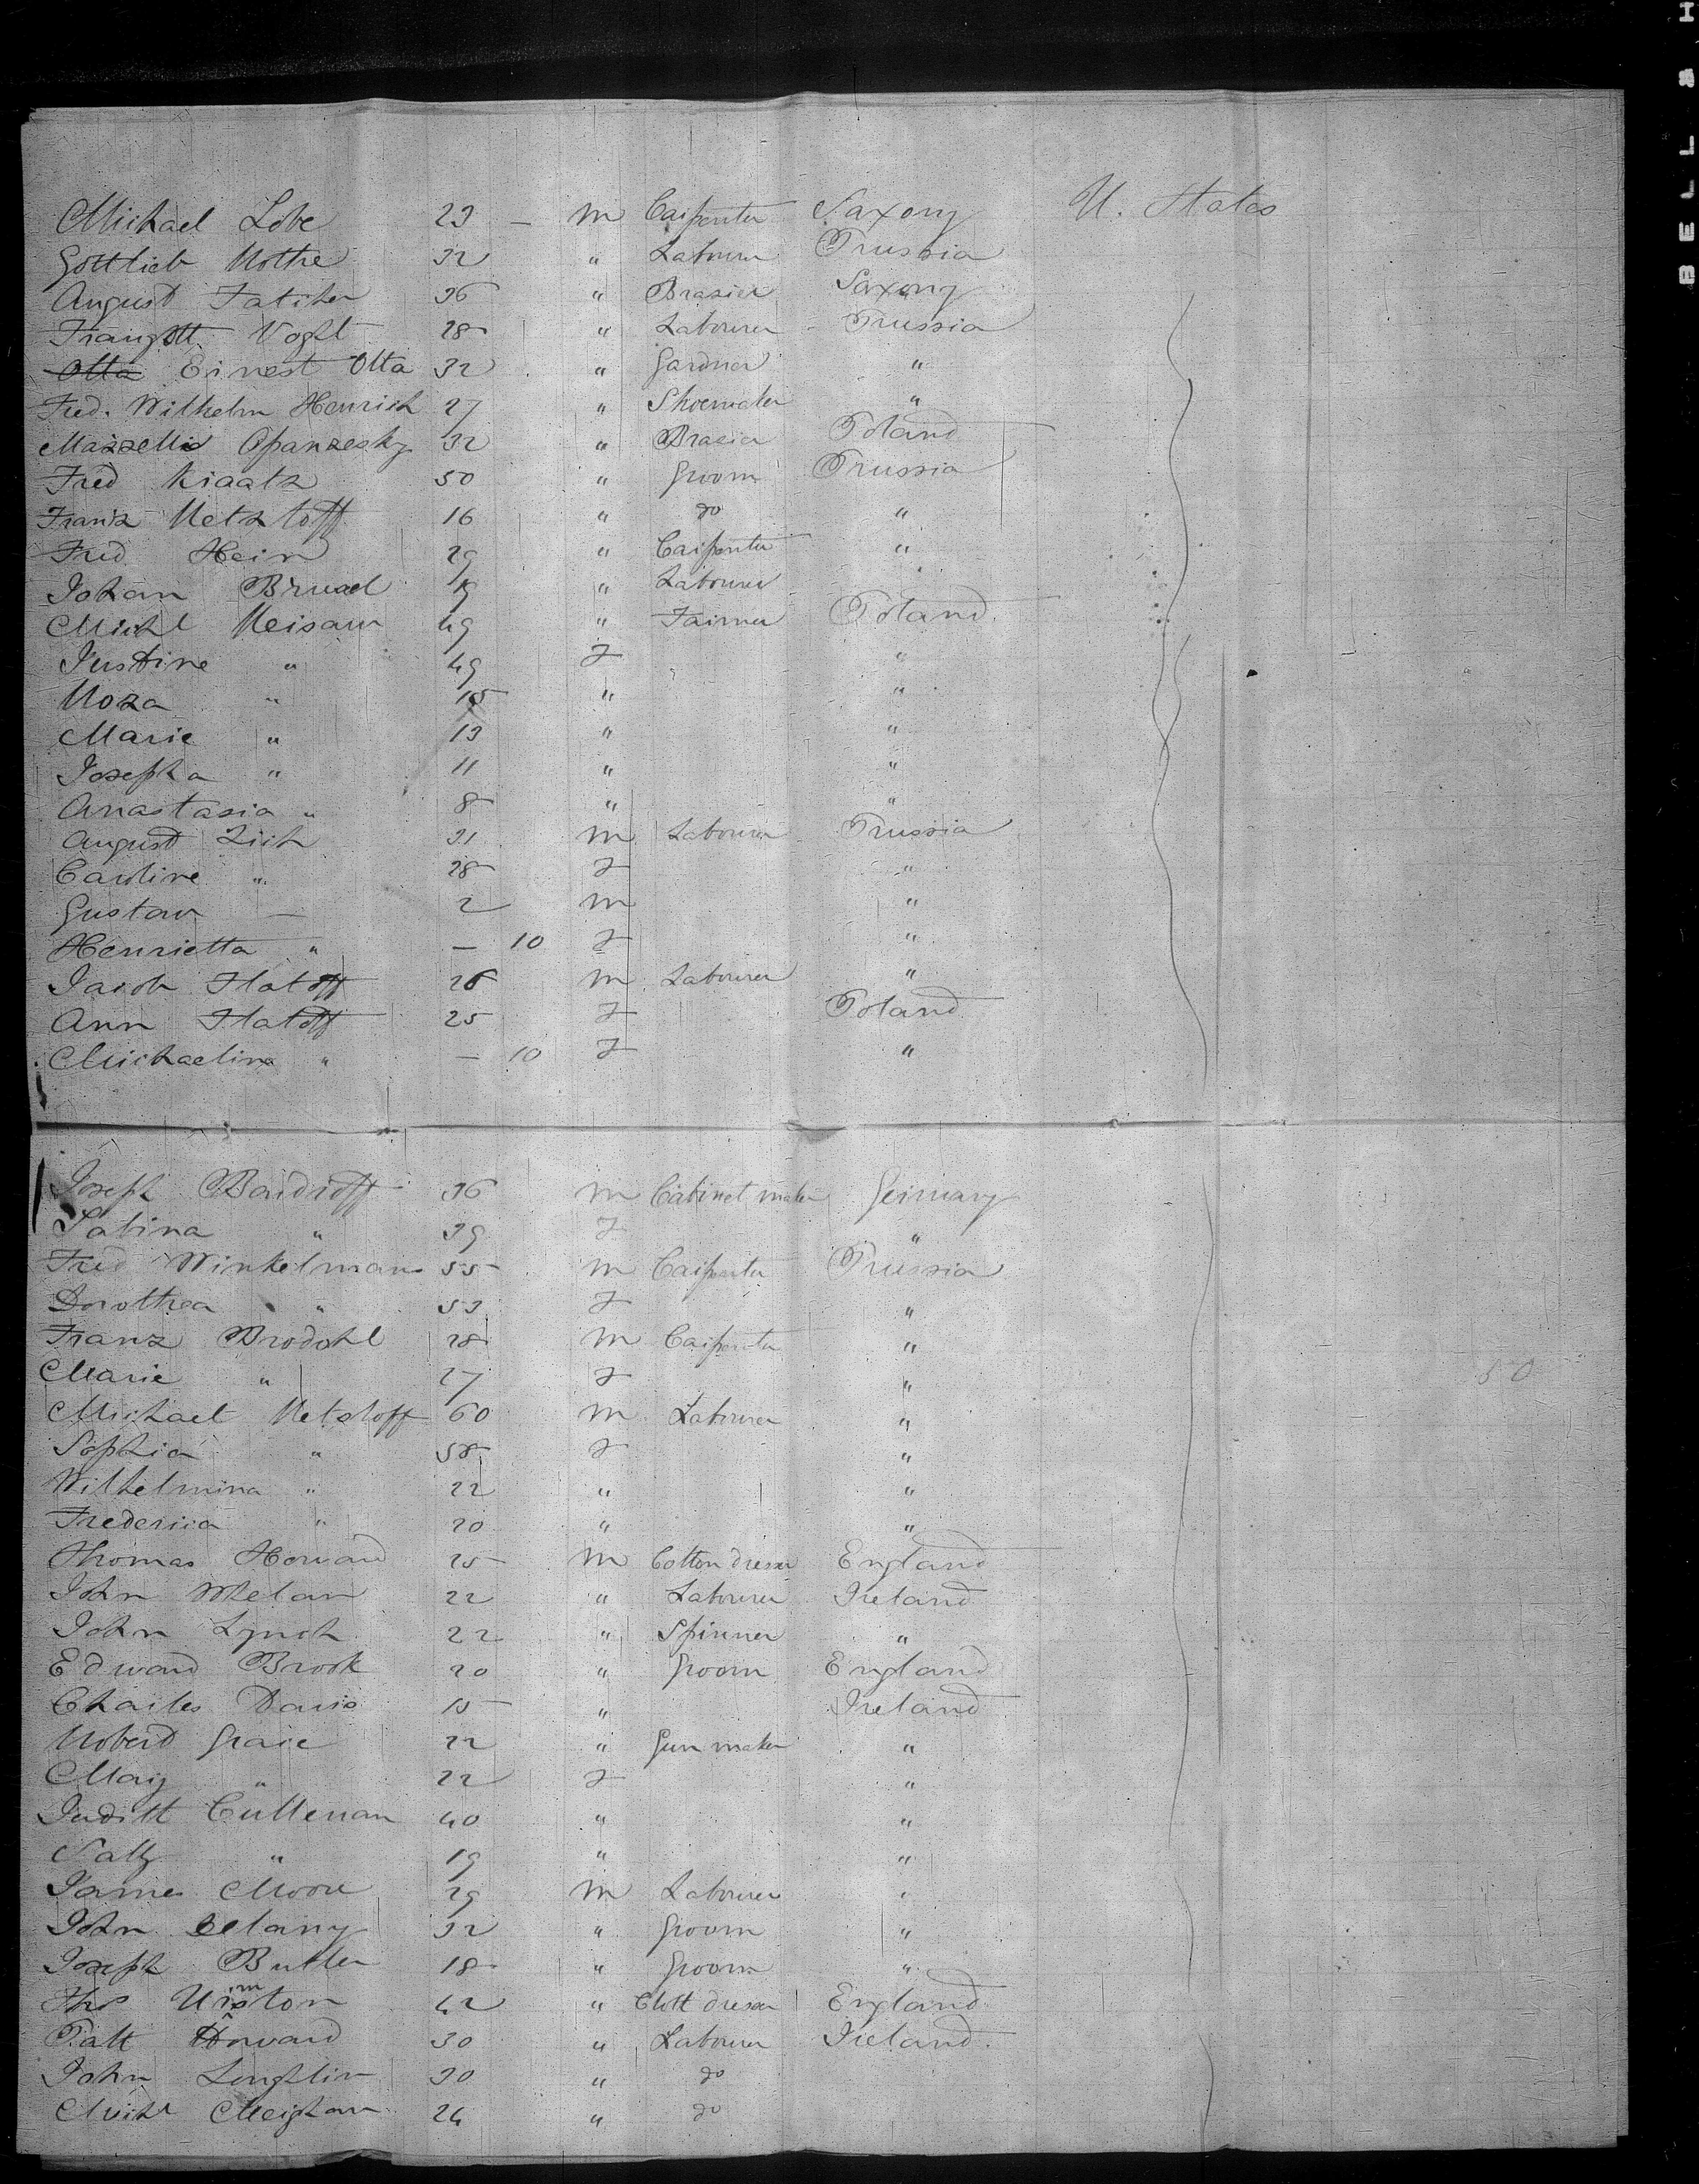 Michael Lobe 29 — M Carpenter Saxony U. States
Gottlieb Nothe 32 " Labourer Prussia
August Fatcher 36 " Brasier Saxony
Traugott Vogtt 28 " Labourer Prussia
Otta Ernest Otta 32 " Gardner "
Fred. Wilhelm Henrich 27 " Shoemaker "
Opanzesky 32 " Brasier Poland
Fred Kiaatz 50 " Groom Prussia
Franz Netzloff 16 " do "
Fred Hein 29 " Carpenter "
Johan 19 " Labourer "
Michl Meisam 49 " Farmer Poland
Justine " 49 F "
Roza " 15 " "
Marie " 13 " "
Josepha " 11 " "
Anastasia " 8 " "
August Lich 31 M Labourer Prussia
Caroline " 28 F "
Gustav — 2 M "
Henrietta " — 10 F "
Jacob Flatoff 26 M Labourer "
Ann Flatoff 25 F Poland
Michaelina " — 10 F "
Joseph Bardroff 36 M Cabinet maker Germany
Sabina " 39 F "
Fred Winkelman 55 M Carpenter Prussia
Dorothea " 53 F "
Franz Brodohl 28 M Carpenter "
Marie " 27 F " 50
Michael Netzloff 60 M Labourer "
Sophia " 58 F "
Wilhelmina " 22 " "
Frederica " 20 " "
Thomas Howard 25 M Cotton dresser England
John Whelan 22 " Labourer Ireland
John Lynch 22 " Spinner "
Edward Brook 20 " Groom England
Charles Davis 15 " Ireland
Robert Grace 22 " Gun maker "
Mary " 22 F "
Judith Cullenan 40 " "
Sally " 19 " "
James Moore 29 M Labourer "
John Delany 32 " Groom "
Joseph Butler 18 " Groom "
Ths 42 " Cloth dresser England
Patt Howard 30 " Labourer Ireland
John Loughlin 30 " do
Michl Meighan 24 " do
BELL &